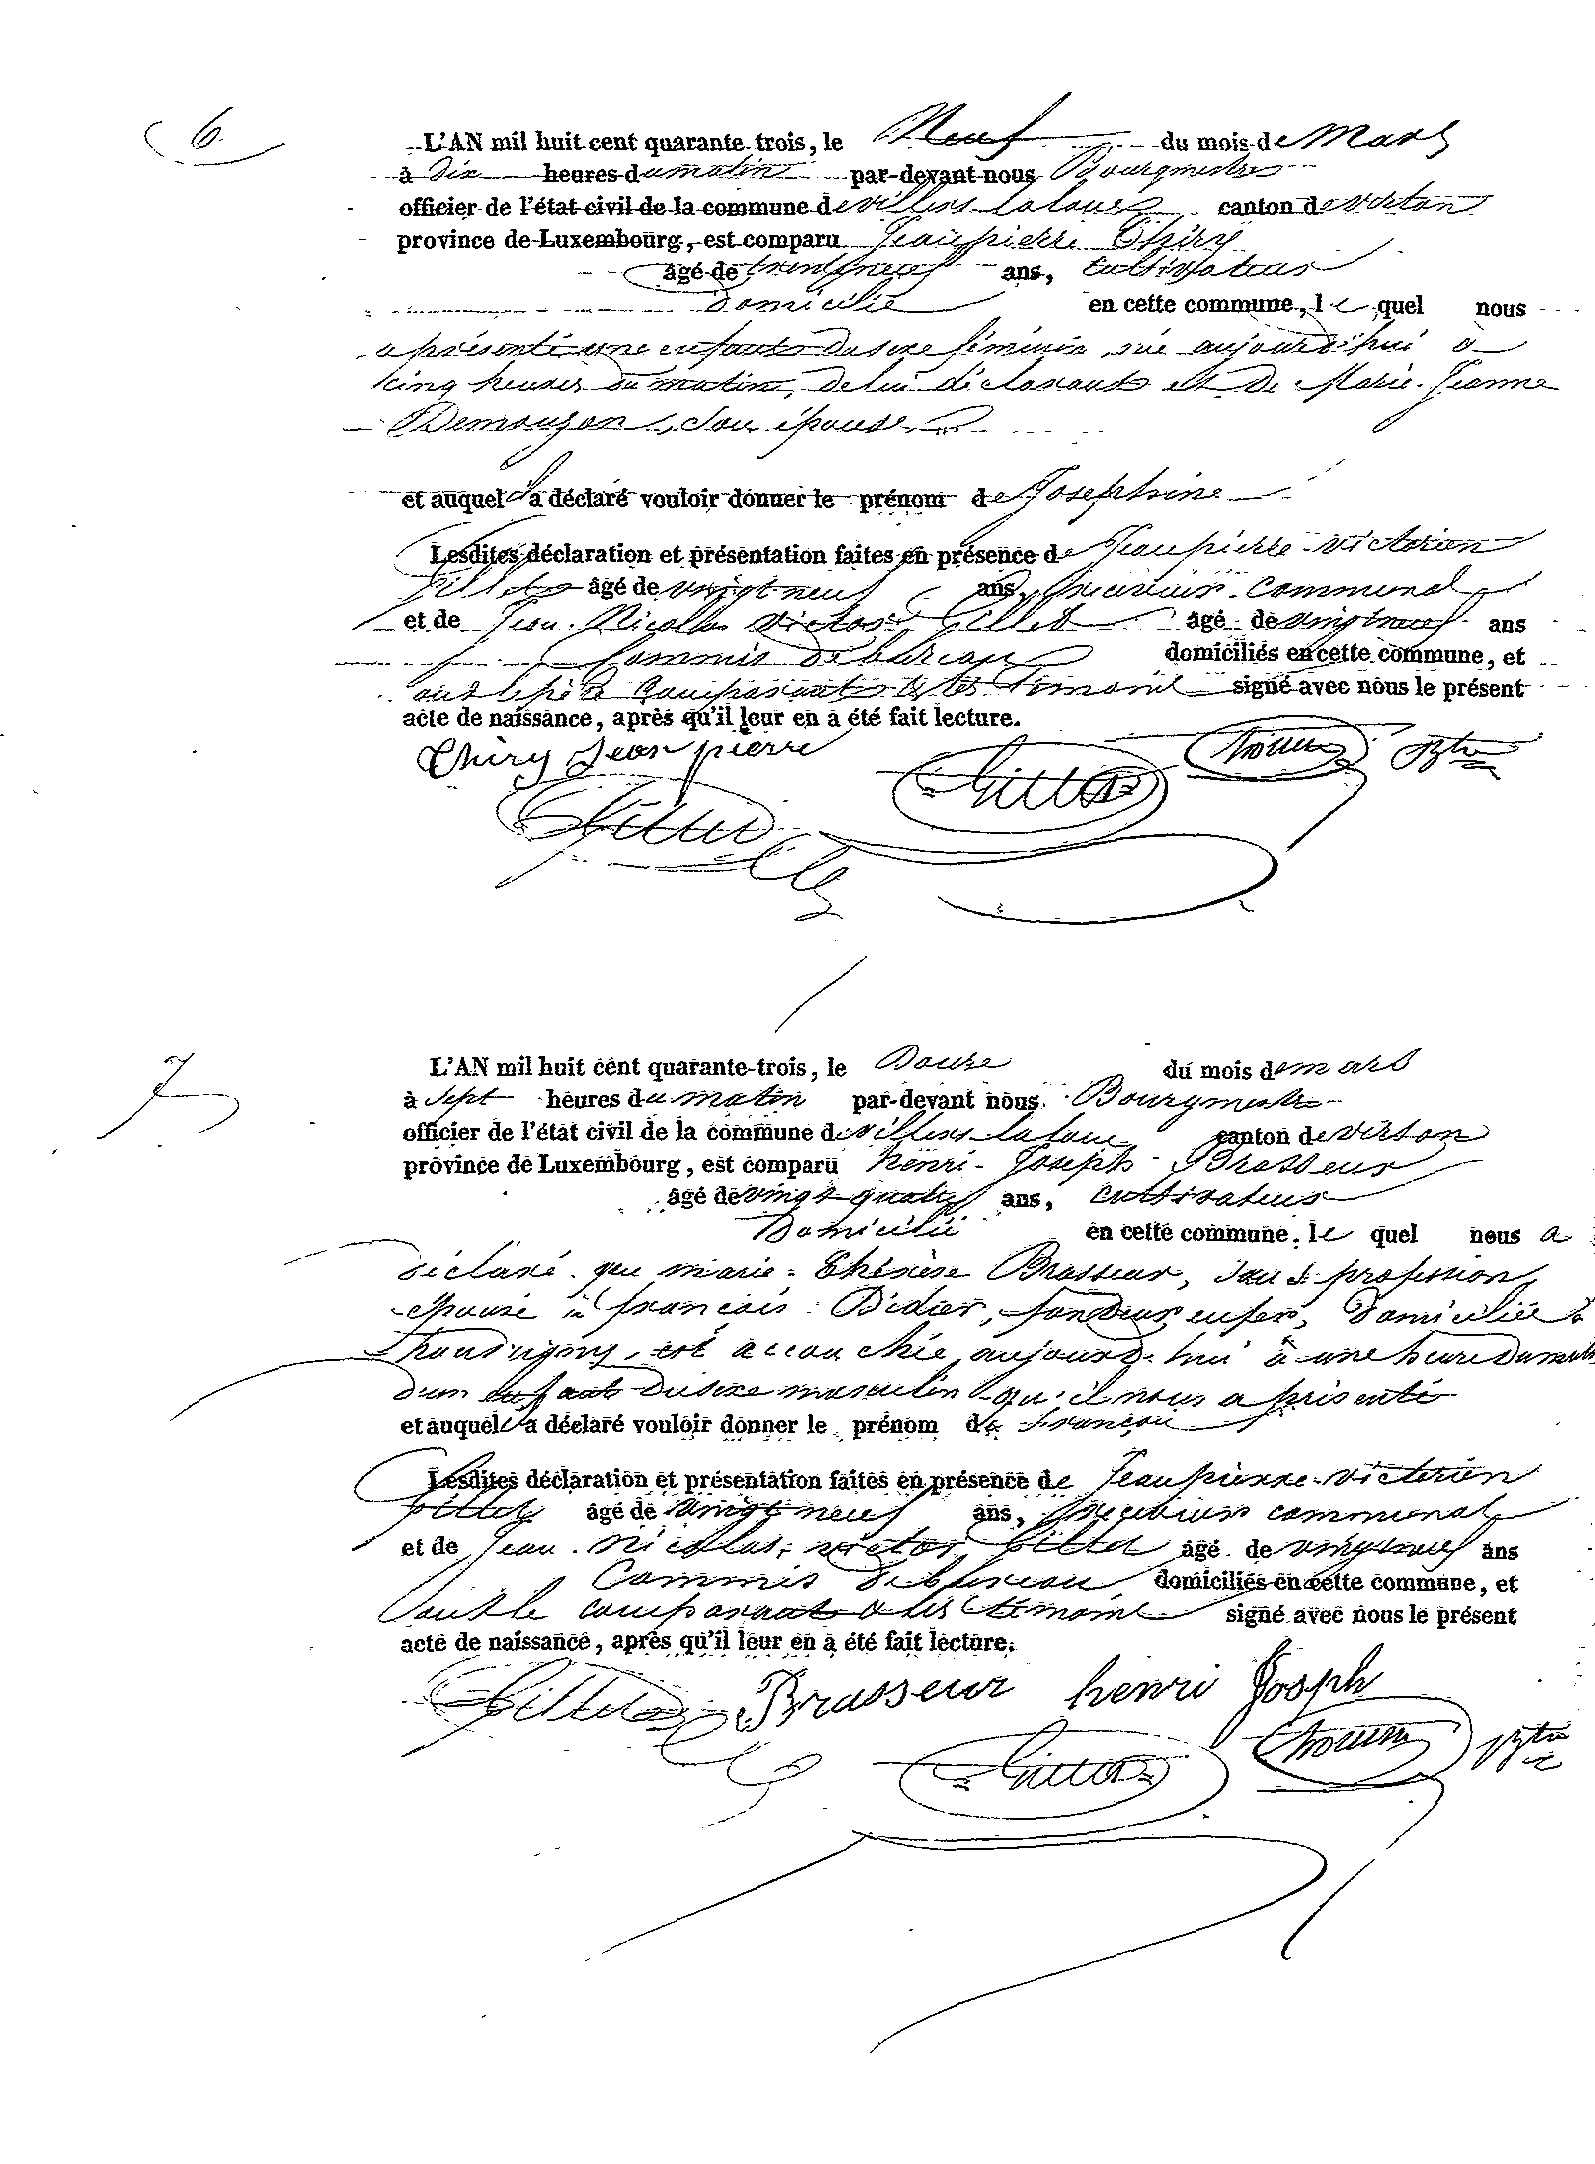 6
L'AN mil huit cent quarante-trois, le Neuf du mois de Mars
à Dix heures du matin par-devant nous Bourgmestre
officier de l'état civil de la commune de villers la loue canton de virton
province de Luxembourg, est comparu Jean pierre Thiry
âgé de trente neuf ans, cultivateur
domicilié en cette commune, le quel nous
a présenté une enfant du sexe féminin, née aujourd'hui à
cinq heures du matin, de lui déclarant et de Marie Jeanne
Demouzon, son épouse
et auquel il a déclaré vouloir donner le prénom de Josephine
Lesdites déclaration et présentation faites en présence de Jean pierre victorien
Gillet âgé de vingt neuf ans, communal
et de Jean Nicolas victor Gillet âgé de vingt neuf ans
Commis de bureau domiciliés en cette commune, et
ont le père comparant et les témoins signé avec nous le présent
acte de naissance, après qu'il leur en a été fait lecture.
Thiry Jean pierre
Gillet Gillet
7
L'AN mil huit cent quarante-trois, le Douze du mois de mars
à sept heures du matin par-devant nous Bourgmestre
officier de l'état civil de la commune de villers la loue canton de virton
province de Luxembourg, est comparu henri Joseph Brasseur
âgé de vingt quatre ans, cultivateur
Domicilié en cette commune, le quel nous a
déclaré que marie Thérèse Brasseur, sans profession,
épouse à françois Didier, fondeur en fer, domiciliée à
est accouchée aujourd'hui à une heure du matin
d'un enfant du sexe masculin qu'il nous a présenté
et auquel il a déclaré vouloir donner le prénom de françois
Lesdites déclaration et présentation faites en présence de Jean pierre victorien
Gillet âgé de vingt neuf ans, communal
et de Jean Nicolas victor Gillet âgé de vingt neuf ans
Commis de bureau domiciliés en cette commune, et
ont le comparant et les témoins signé avec nous le présent
acte de naissance, après qu'il leur en a été fait lecture.
Gillet Brasseur henri Josph
Gillet